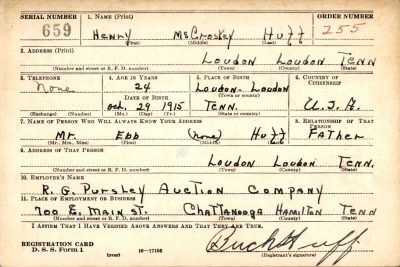 SERIAL NUMBER 1. NAME (Print) ORDER NUMBER
659 Henry McCroskey Huff 255
(First) (Middle) (Last)
2. ADDRESS (Print)
Loudon Loudon Tenn
(Number and street or R. F. D. number) (Town) (County) (State)
3. TELEPHONE 4. AGE IN YEARS 5. PLACE OF BIRTH 6. COUNTRY OF CITIZENSHIP
None 24 Loudon-Loudon
DATE OF BIRTH (Town or county)
Oct. 29 1915 Tenn. U.S.A.
(Exchange) (Number) (Mo.) (Day) (Yr.) (State or country)
7. NAME OF PERSON WHO WILL ALWAYS KNOW YOUR ADDRESS 8. RELATIONSHIP OF THAT PERSON
Mr. Ebb (none) Huff Father
(Mr., Mrs., Miss) (First) (Middle) (Last)
9. ADDRESS OF THAT PERSON
Loudon Loudon Tenn.
(Number and street or R. F. D. number) (Town) (County) (State)
10. EMPLOYER'S NAME
R. G. Pursley Auction Company
11. PLACE OF EMPLOYMENT OR BUSINESS
700 E. Main St. Chattanooga Hamilton Tenn
(Number and street or R. F. D. number) (Town) (County) (State)
I AFFIRM THAT I HAVE VERIFIED ABOVE ANSWERS AND THAT THEY ARE TRUE.
REGISTRATION CARD
D. S. S. Form 1 (over) 16-17105 Buck Huff
(Registrant's signature)